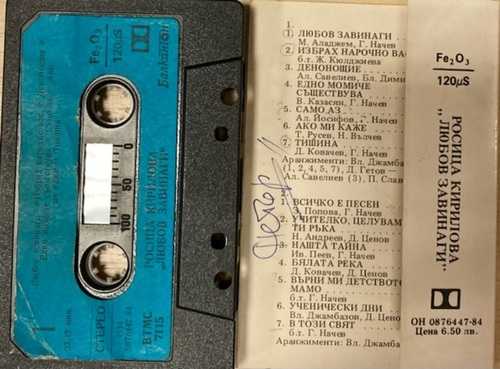 Fe₂O₃
120µS
Балкантон
100 50 0
РОСИЦА КИРИЛОВА
„ЛЮБОВ ЗАВИНАГИ"
СТЕРЕО
ВТМС
7115
1.
① ЛЮБОВ ЗАВИНАГИ
М. Аладжем, Г. Начев
② ИЗБРАХ НАРОЧНО ВА
б.т. Ж. Кюлджиева
3. ДЕНОНОЩИЕ
Ал. Савелиев, Бл. Дими
4. ЕДНО МОМИЧЕ
СЪЩЕСТВУВА
В. Казасян, Г. Начев
5. САМО АЗ
Ал. Йосифов, Г. Начев
6. АКО МИ КАЖЕ
Т. Русев, Н. Вълчев
⑦ ТИШИНА
Д. Ковачев, Г. Начев
Аранжименти: Вл. Джамбаз
(1, 2, 4, 5, 7), Д. Гетов —
Ал. Савелиев (3), П. Слав
1. ВСИЧКО Е ПЕСЕН
Попова, Г. Начев
2. УЧИТЕЛКО, ЦЕЛУВАМ
ТИ РЪКА
Н. Андреев, Д. Ценов
3. НАШТА ТАЙНА
Ив. Пеев, Г. Начев
4. БЯЛАТА РЕКА
Д. Ковачев, Д. Ценов
5. ВЪРНИ МИ ДЕТСТВОТО
МАМО
б.т. Г. Начев
6. УЧЕНИЧЕСКИ ДНИ
Вл. Джамбазов, Д. Ценов
7. В ТОЗИ СВЯТ
б.т. Г. Начев
Аранжименти: Вл. Джамбаз
Fe₂O₃
120µS
РОСИЦА КИРИЛОВА
„ЛЮБОВ ЗАВИНАГИ"
ОН 0876447-84
Цена 6.50 лв.